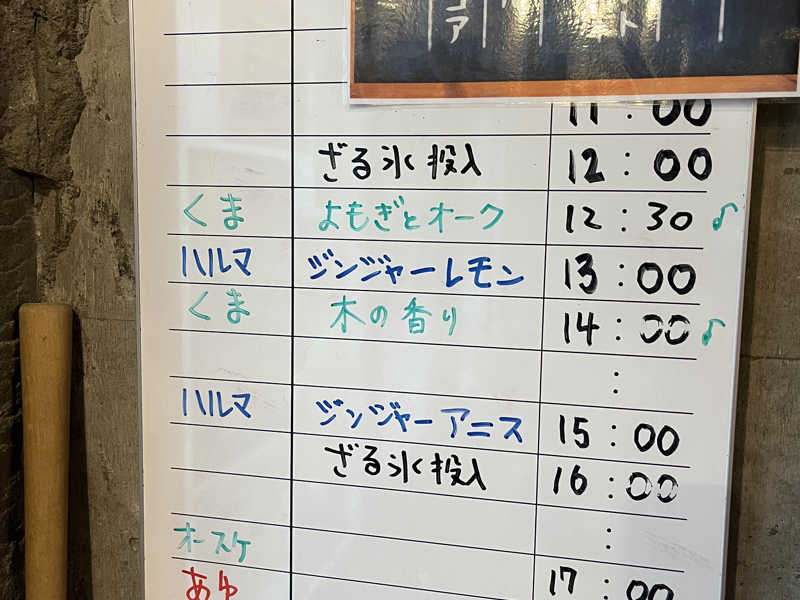 コア
ト
11:00
ざる氷投入 12:00
くま よもぎとオーク 12:30 ♪
ハルマ ジンジャーレモン 13:00
くま 木の香り 14:00 ♪
:
ハルマ ジンジャーアニス 15:00
ざる氷投入 16:00
オースケ :
あゆ 17:00